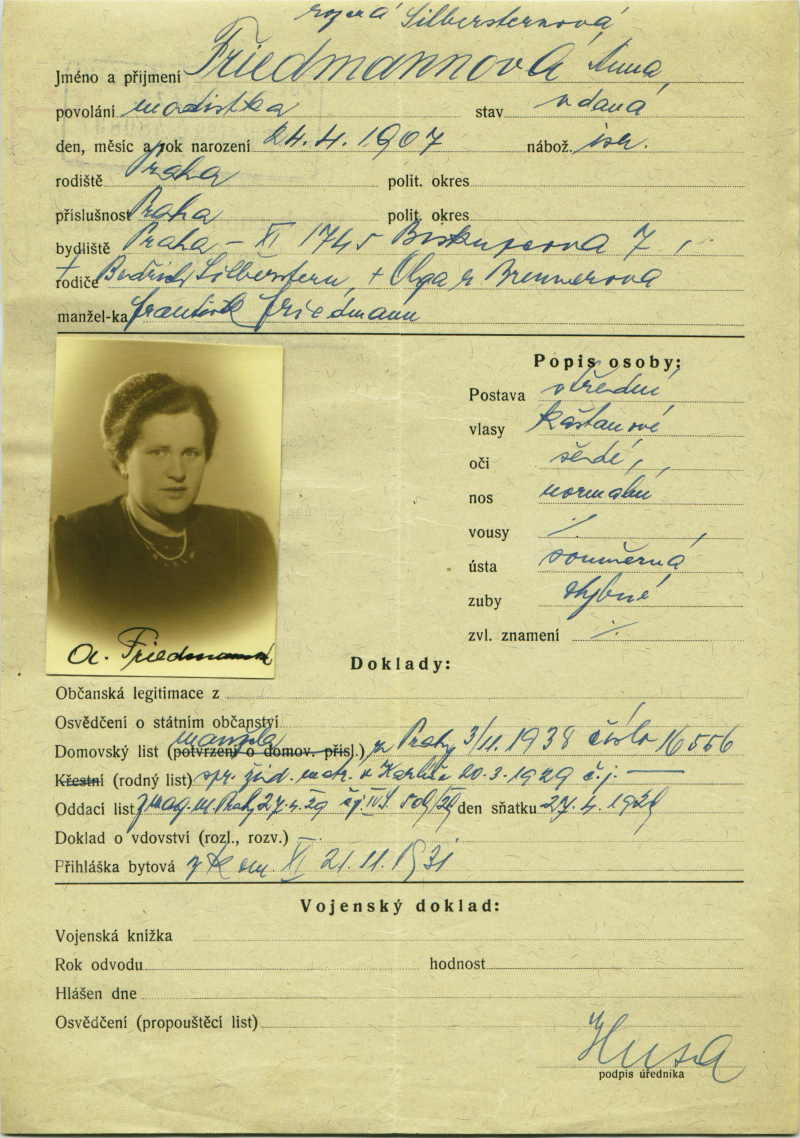 rozená Silbersternová
Jméno a příjmení Friedmannová Anna
povolání modistka stav vdaná
den, měsíc a rok narození 24.4.1907 nábož. isr.
rodiště Praha polit. okres
příslušnost Praha polit. okres
bydliště Praha - XI 1745 Biskupcova 7
rodiče Silberstern, + Olga r Brennerova
manžel-ka František Friedmann
Popis osoby:
Postava střední
vlasy kaštanové
oči šedé
nos normalní
vousy ./.
ústa souměrná
zuby chybné
zvl. znamení ./.
A. Friedmannová
Doklady:
Občanská legitimace z
Osvědčení o státním občanství
manžela
Domovský list (potvrzení o domov. přísl.) z Prahy 3/11.1938 číslo 16556
Křestní (rodný list) spr. žid. matr. v 20.3.1929 č.j. —
Oddací list mag. m. Prahy 27.4.29 čj. IV den sňatku 27.4.1929
Doklad o vdovství (rozl., rozv.)
Přihláška bytová z kom XI 21.11.1931
Vojenský doklad:
Vojenská knížka
Rok odvodu hodnost
Hlášen dne
Osvědčení (propouštěcí list)
Husa
podpis úředníka